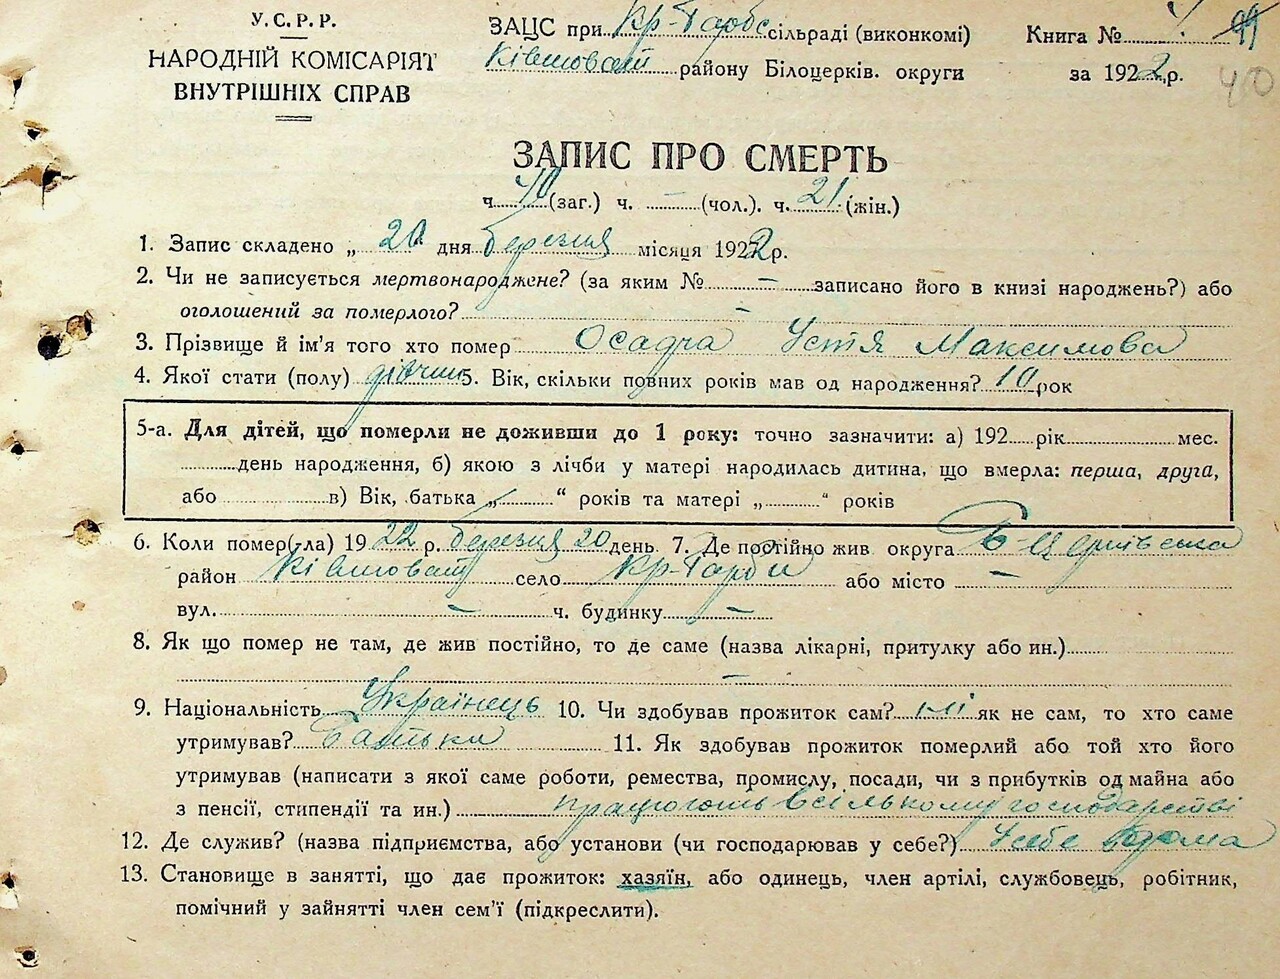 У.С.Р.Р.
НАРОДНІЙ КОМІСАРІЯТ
ВНУТРІШНІХ СПРАВ
ЗАЦС при Кр-Гарбс сільраді (виконкомі)
Ківшоват району Білоцерків. округи
Книга №
за 1922 р.
40
ЗАПИС ПРО СМЕРТЬ
ч. 40 (заг.) ч. – (чол.). ч. 21 (жін.)
1. Запис складено „ 20 " дня березня місяця 1922 р.
2. Чи не записується мертвонароджене? (за яким № – записано його в книзі народжень?) або
оголошений за померлого? –
3. Прізвище й ім'я того хто помер Осадча Устя Максимова
4. Якої стати (полу) 5. Вік, скільки повних років мав од народження? 10 рок
5-а. Для дітей, що померли не доживши до 1 року: точно зазначити: а) 192 рік мес.
день народження, б) якою з лічби у матері народилась дитина, що вмерла: перша, друга,
або в) Вік, батька „ “ років та матері „ “ років
6. Коли помер(-ла) 1922 р. березня 20 день 7. Де постійно жив округа Б-Церківська
район Ківшоват село Кр-Гарби або місто –
вул. – ч. будинку –
8. Як що помер не там, де жив постійно, то де саме (назва лікарні, притулку або ин.)
–
9. Національність Українець 10. Чи здобував прожиток сам? ні як не сам, то хто саме
утримував? Батьки 11. Як здобував прожиток померлий або той хто його
утримував (написати з якої саме роботи, ремества, промислу, посади, чи з прибутків од майна або
з пенсії, стипендії та ин.) господарстві
12. Де служив? (назва підприємства, або установи (чи господарював у себе?) У себе вдома
13. Становище в занятті, що дає прожиток: хазяїн, або одинець, член артілі, службовець, робітник,
помічний у зайнятті член сем'ї (підкреслити).